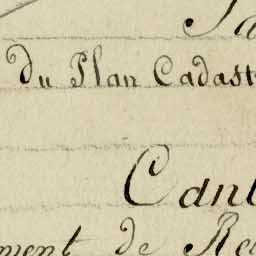 du Plan Cadast
Cant
ment de Re